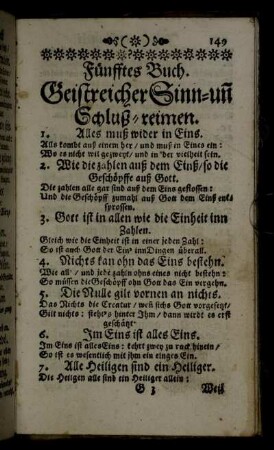 (*) 149
Fünfftes Buch.
Geistreicher Sinn-uñ
Schluß-reimen.
1. Alles muß wider in Eins.
Alls kombt auß einem her/ und muß in Eines ein:
Wo es nicht wil gezweyt/ und in der vielheit sein.
2. Wie die zahlen auß dem Einß/ so die
Geschöpffe auß Gott.
Die zahlen alle gar sind auß dem Eins geflossen:
Und die Geschöpff zumahl auß Gott dem Einß entsprossen.
3. Gott ist in allen wie die Einheit inn
Zahlen.
Gleich wie die Einheit ist in einer jeden Zahl:
So ist auch Gott der Eins in'n Dingen überall.
4. Nichts kan ohn das Eins bestehn.
Wie all' und jede zahln ohns eines nicht bestehn:
So müssen die Geschöpff ohn Gott das Ein vergehn.
5. Die Nulle gilt vornen an nichts.
Das Nichts die Creatur/ wenns sichs Gott vorgesetzt/
Gilt nichts: steht's hinter Ihm/ dann wirdt es erst
geschätzt.
6. Im Eins ist alles Eins.
Im Eins ist alles Eins: kehrt zwey zu rück hinein/
So ist es wesentlich mit jhm ein einges Ein.
7. Alle Heiligen sind ein Heiliger.
Die Heilgen alle sind ein Heiliger allein:
G 3 Weil